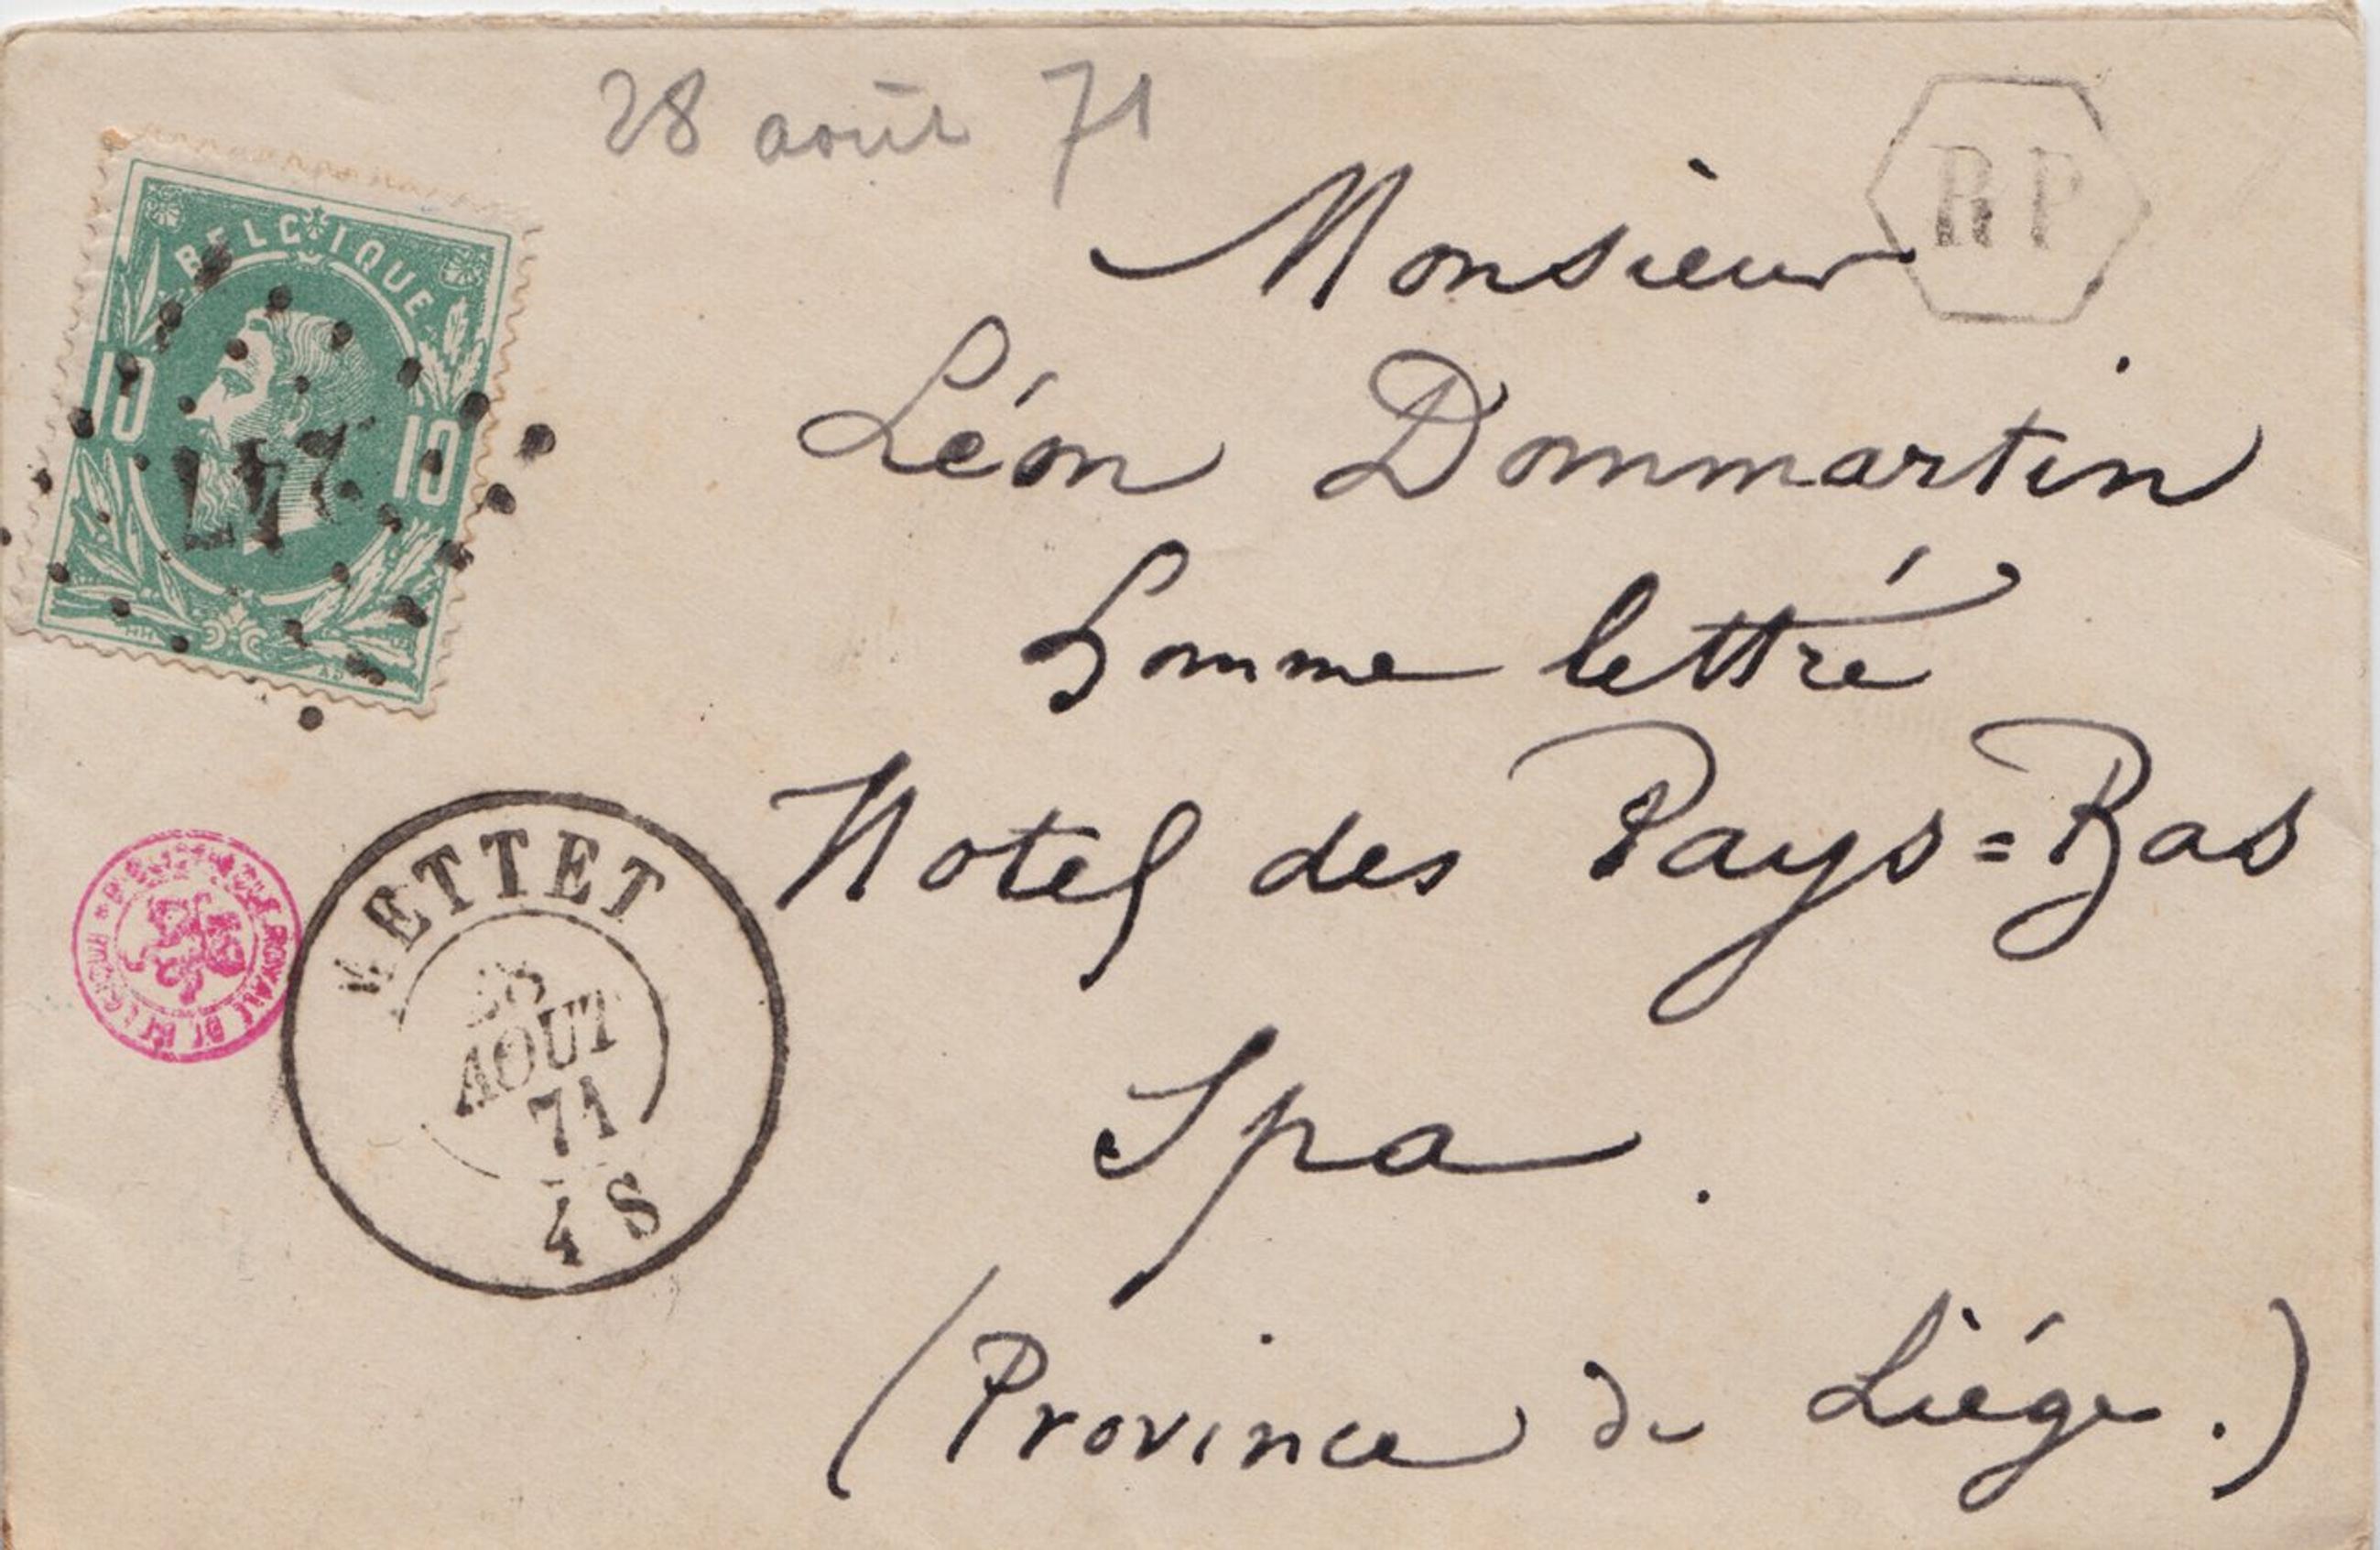 28 août 71
RP
BELGIQUE
10 10
247
Monsieur
Léon Dommartin
homme lettré
Hotel des Pays=Bas
Spa.
(Province de Liége.)
METTET
28
AOUT
71
4 S
ROYALE DE BELGIQUE